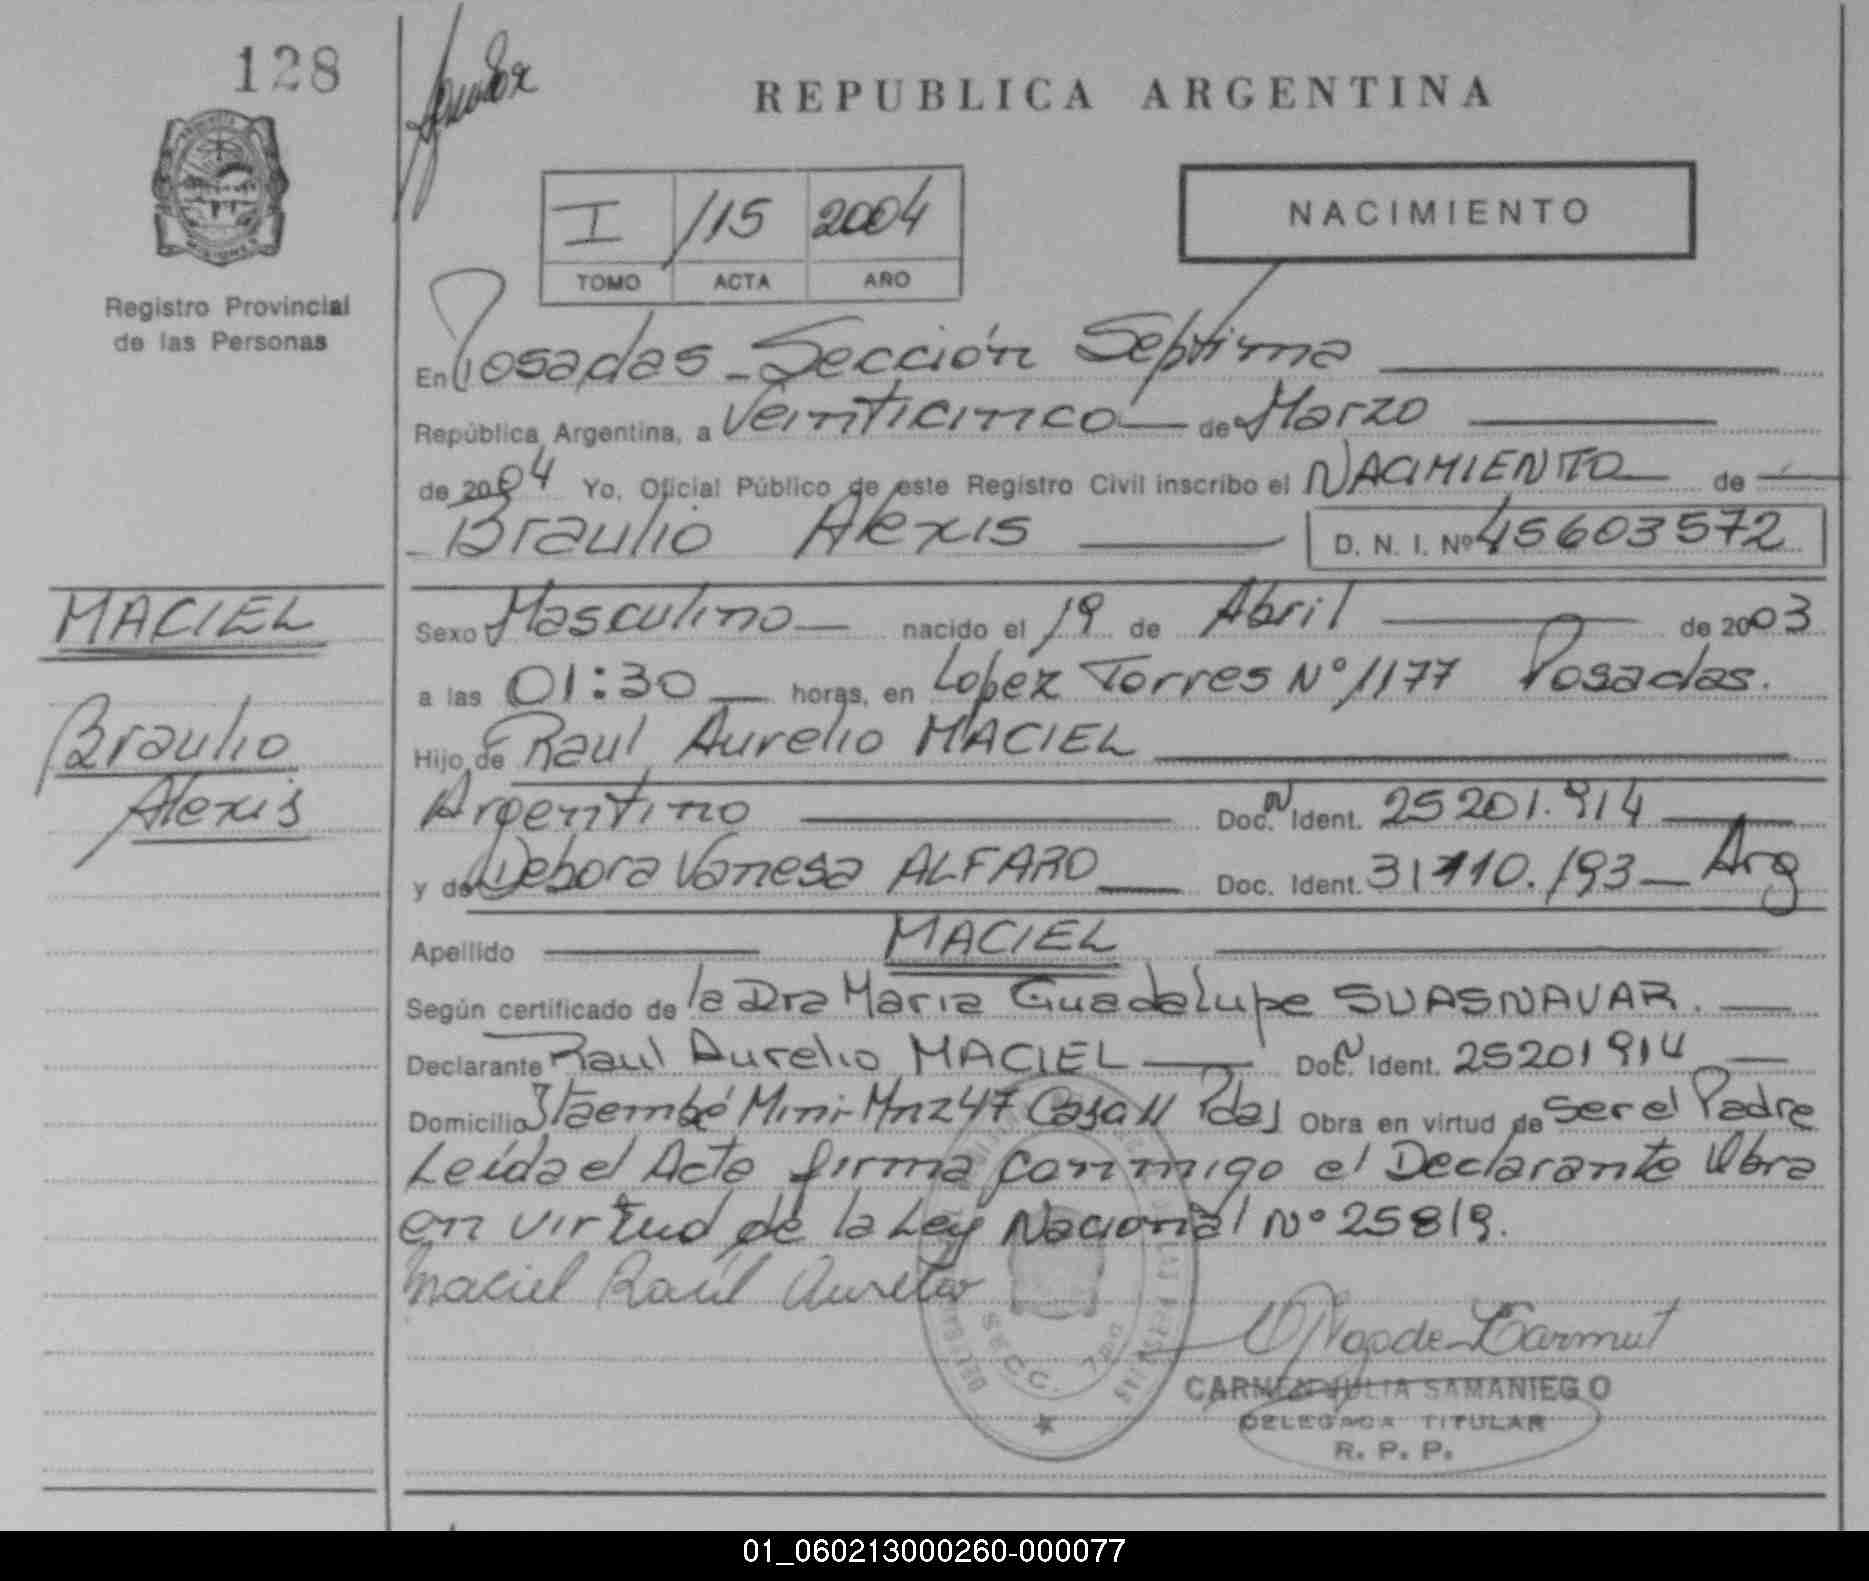 128
REPUBLICA ARGENTINA
I /15 2004
TOMO ACTA AÑO
NACIMIENTO
Registro Provincial
de las Personas
En Posadas - Sección Séptima
República Argentina, a Veinticinco de Marzo
de 2004 Yo, Oficial Público de este Registro Civil inscribo el NACIMIENTO de
Braulio Alexis D. N. I. Nº 45603572
MACIEL
Braulio
Alexis
Sexo Masculino nacido el 19 de Abril de 2003
a las 01:30 horas, en Lopez Torres Nº 1177 Posadas.
Hijo de Raul Aurelio MACIEL
Argentino Doc. N Ident. 25201.914
y de Debora Vanesa ALFARO Doc. Ident. 31110.193 Arg
Apellido MACIEL
Según certificado de la Dra Maria Guadalupe SUASNAVAR.
Declarante Raul Aurelio MACIEL Doc. N Ident. 25201914
Domicilio Itaembé Mini-Mnz 47 Casa 11 Pdas Obra en virtud de ser el Padre
Leída el Acta firma conmigo el Declarante Obra
en virtud de la Ley Nacional Nº 25819.
Maciel Raúl Aurelio
SECC. 7
CARMEN JULIA SAMANIEGO
DELEGADA TITULAR
R. P. P.
01_060213000260-000077